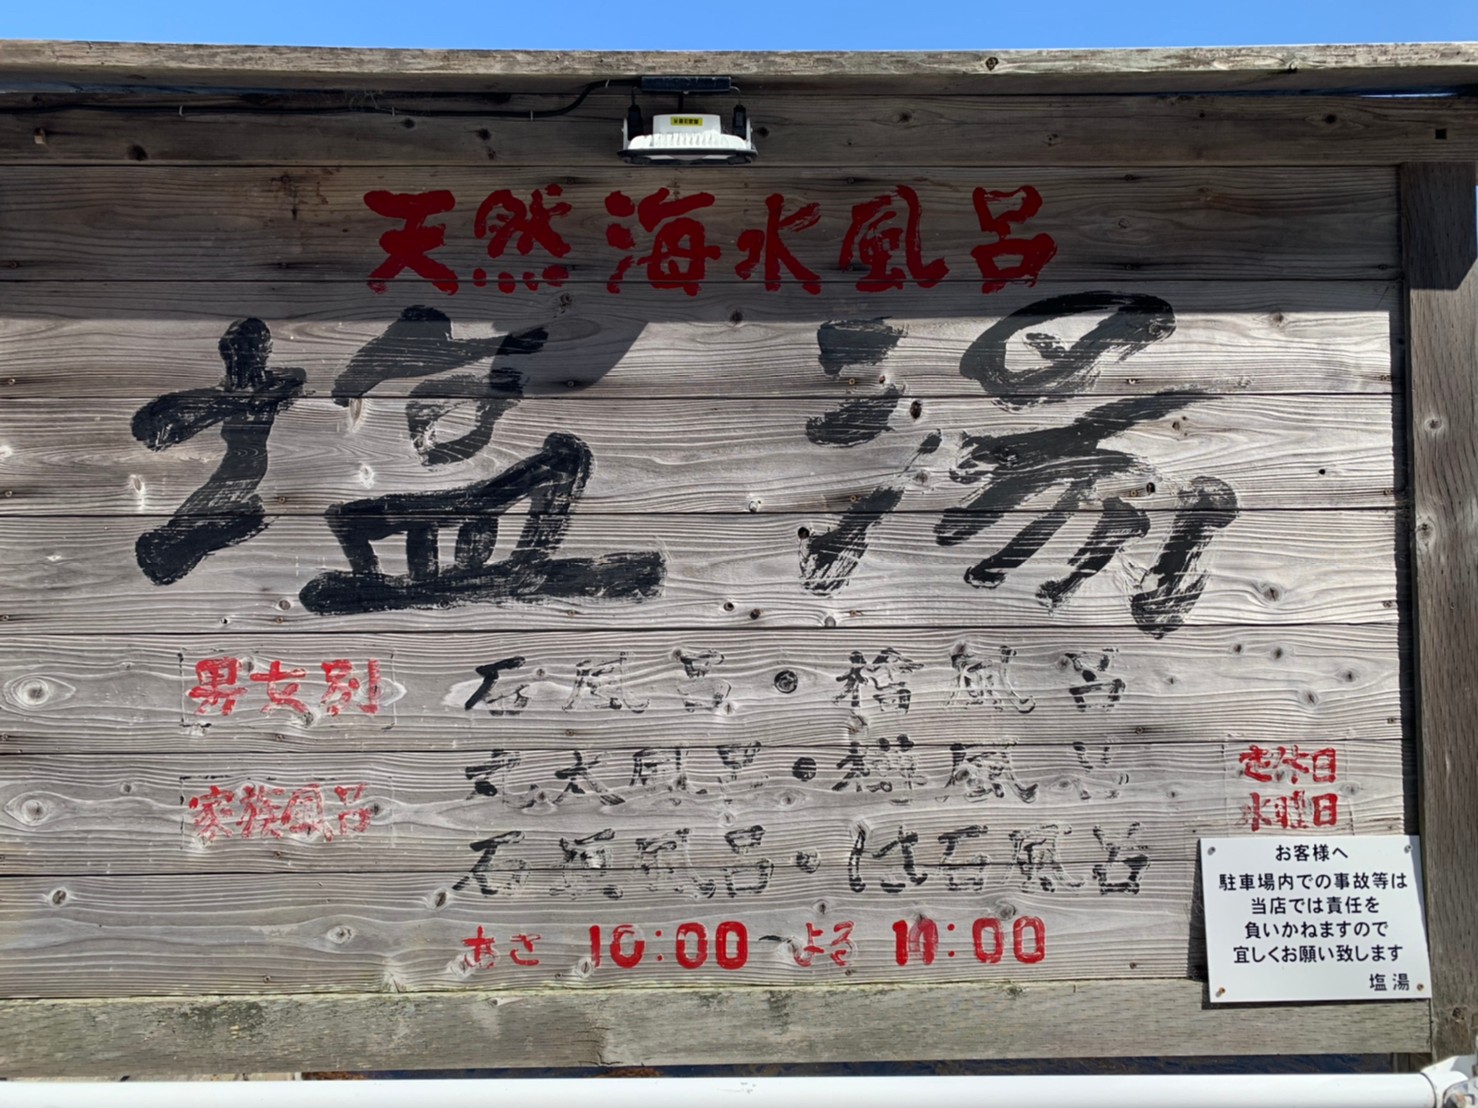 天然海水風呂
塩湯
男女別 石風呂・檜風呂
丸太風呂・樽風呂
家族風呂
石庭風呂・は石風呂
あさ 10:00〜よる 11:00
定休日
水曜日
お客様へ
駐車場内での事故等は
当店では責任を
負いかねますので
宜しくお願い致します
塩湯